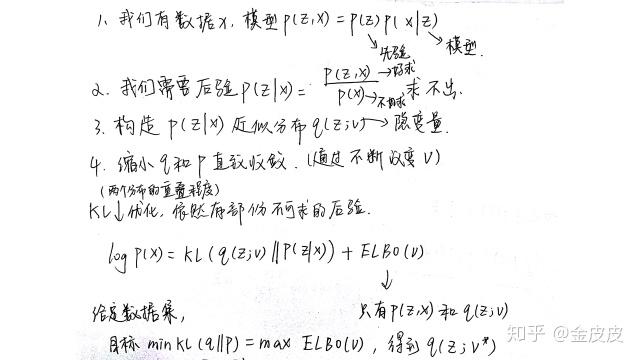 1、我们有数据x，模型p(z,x)=p(z)p(x|z)
先验
模型.
2、我们需要后验p(z|x)= p(z,x)→好求 / p(x)→不好求 求不出.
3、构造 p(z|x) 近似分布 q(z;v)→隐变量.
4、缩小q和p直致收敛.（通过不断改变v）
(两个分布的重叠程度)
KL↓优化，依然有部份不可求的后验.
log p(x)=KL(q(z;v)||p(z|x))+ELBO(v)
↓
给定数据集，
只有p(z,x)和q(z;v)
目标 min KL(q||p)=max ELBO(v)，得到q(z;v*)
知乎 @金皮皮